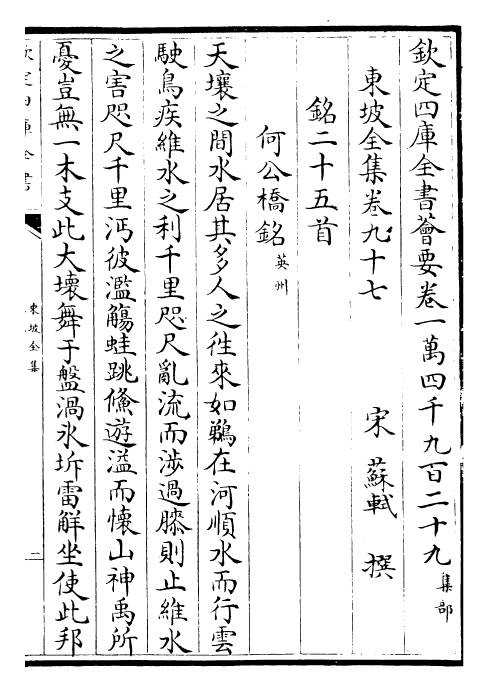 欽定四庫全書薈要卷一萬四千九百二十九 集部
東坡全集卷九十七
宋 蘇軾 撰
銘二十五首
何公橋銘 英州
天壤之間水居其多人之徃來如鵜在河順水而行雲
駛鳥疾維水之利千里咫尺亂流而涉過膝則止維水
之害咫尺千里沔彼濫觴蛙跳鯈遊溢而懷山神禹所
憂豈無一木支此大壞舞于盤渦氷坼雷解坐使此邦
欽定四庫全書
東坡全集